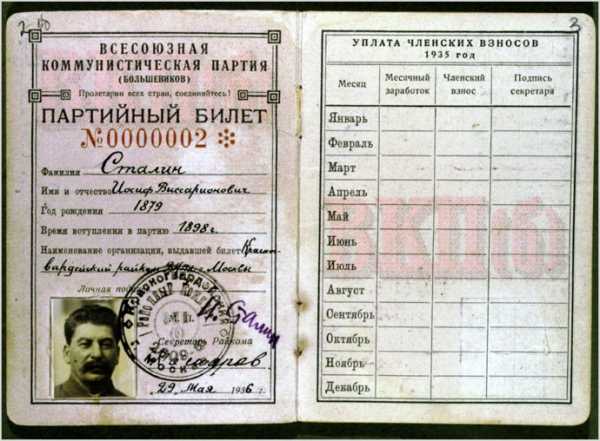 2
ВСЕСОЮЗНАЯ
КОММУНИСТИЧЕСКАЯ ПАРТИЯ
(БОЛЬШЕВИКОВ)
Пролетарии всех стран, соединяйтесь!
ПАРТИЙНЫЙ БИЛЕТ
№0000002
Фамилия Сталин
Имя и отчество Иосиф Виссарионович
Год рождения 1879
Время вступления в партию 1898 г.
Наименование организации, выдавшей билет Красно-
гвардейский райком г. Москвы
Личная
М. П.
Секретарь Райкома
29 Мая 1936 г.
3
УПЛАТА ЧЛЕНСКИХ ВЗНОСОВ
1935 год
Месяц Месячный заработок Членский взнос Подпись секретаря
Январь
Февраль
Март
Апрель
Май
Июнь
Июль
Август
Сентябрь
Октябрь
Ноябрь
Декабрь
ВКП(б)